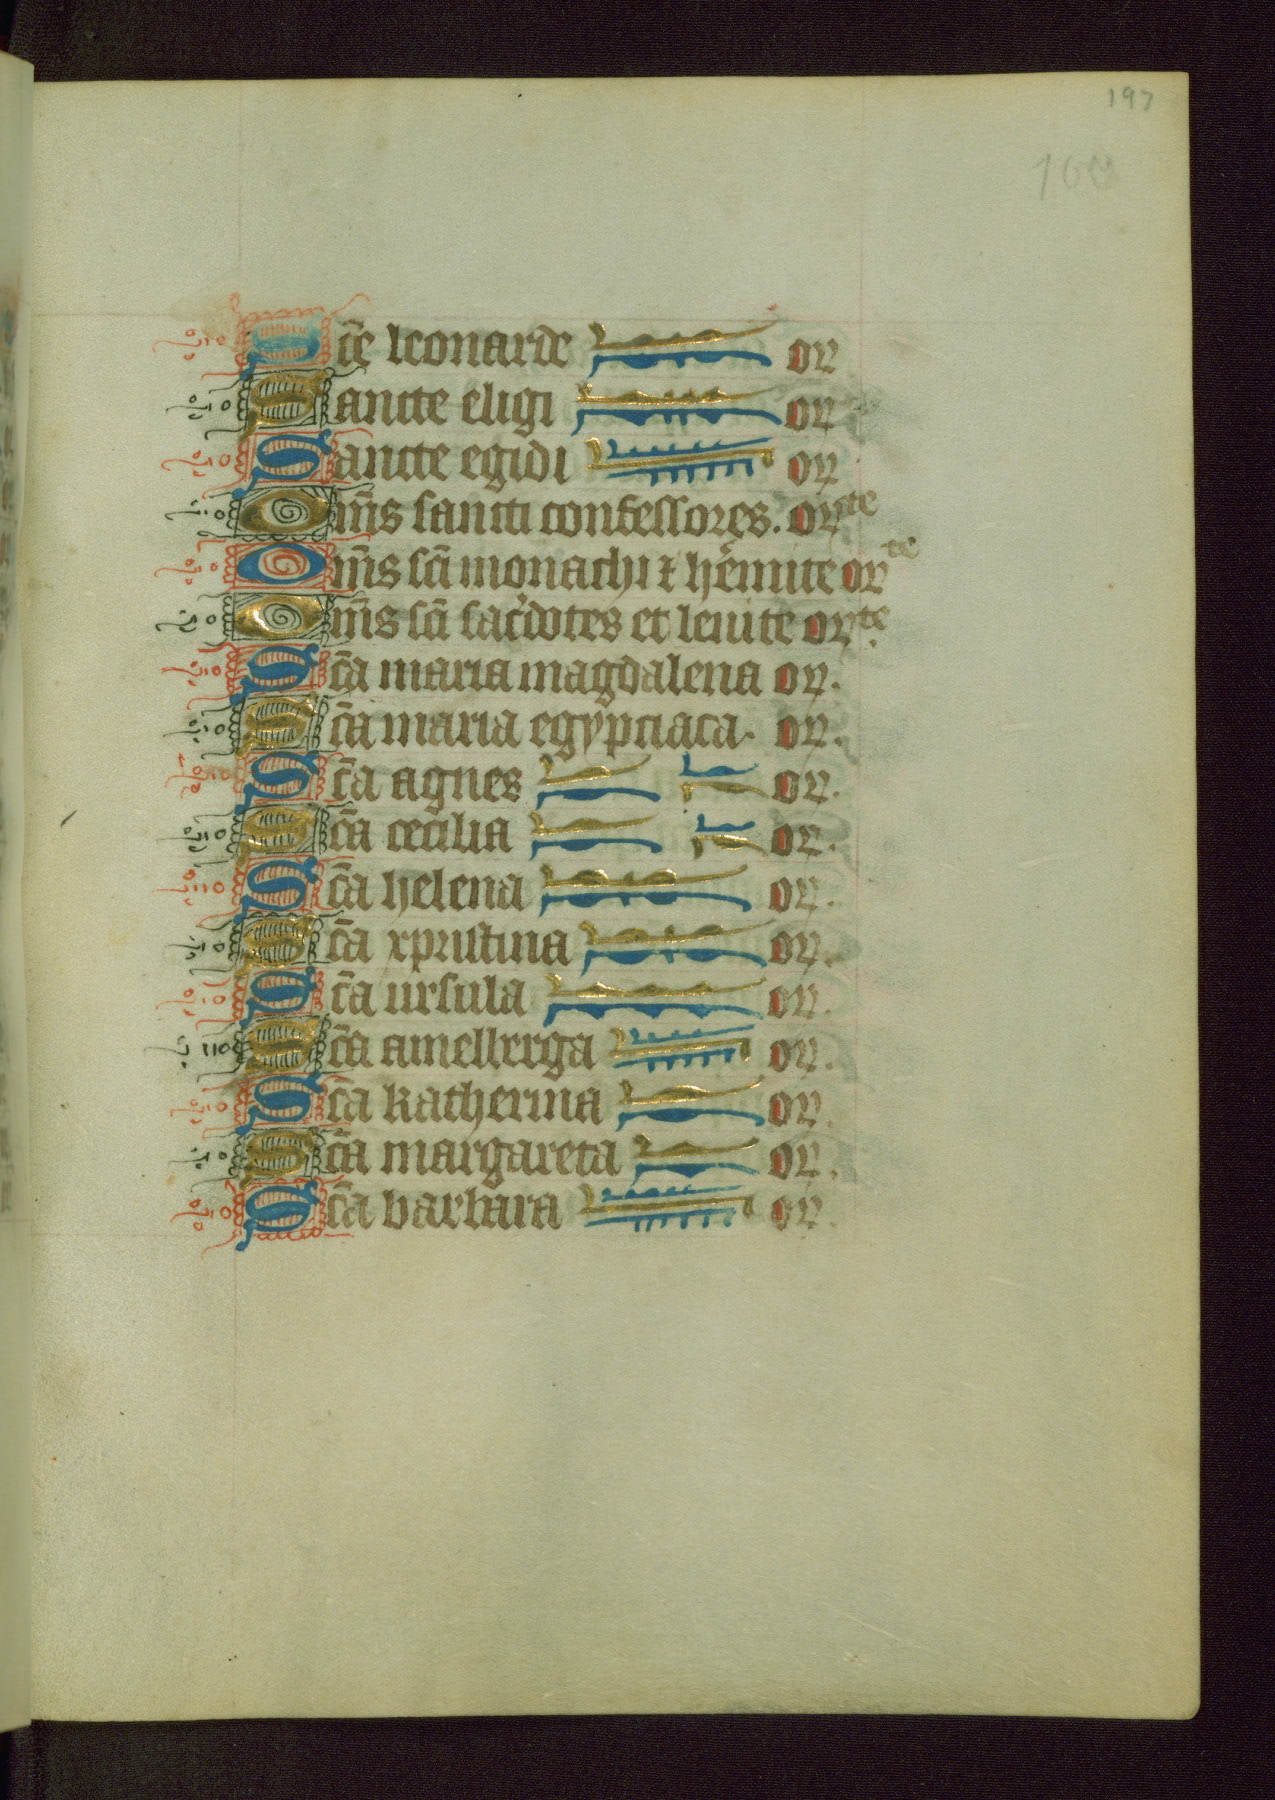 197
168
Sc̄e leonarde or
Sancte eligi or
Sancte egidi or
Om̄s sancti confessores. orate
Om̄s sc̄i monachi ⁊ hermite orate
Om̄s sc̄i sacerdotes et leuite orate.
Sc̄a maria magdalena or.
Sc̄a maria egypciaca. or.
Sc̄a agnes or.
Sc̄a cecilia or.
Sc̄a helena or.
Sc̄a xpristina or.
Sc̄a ursula or.
Sc̄a amelberga or.
Sc̄a katherina or.
Sc̄a margareta or.
Sc̄a barbara or.